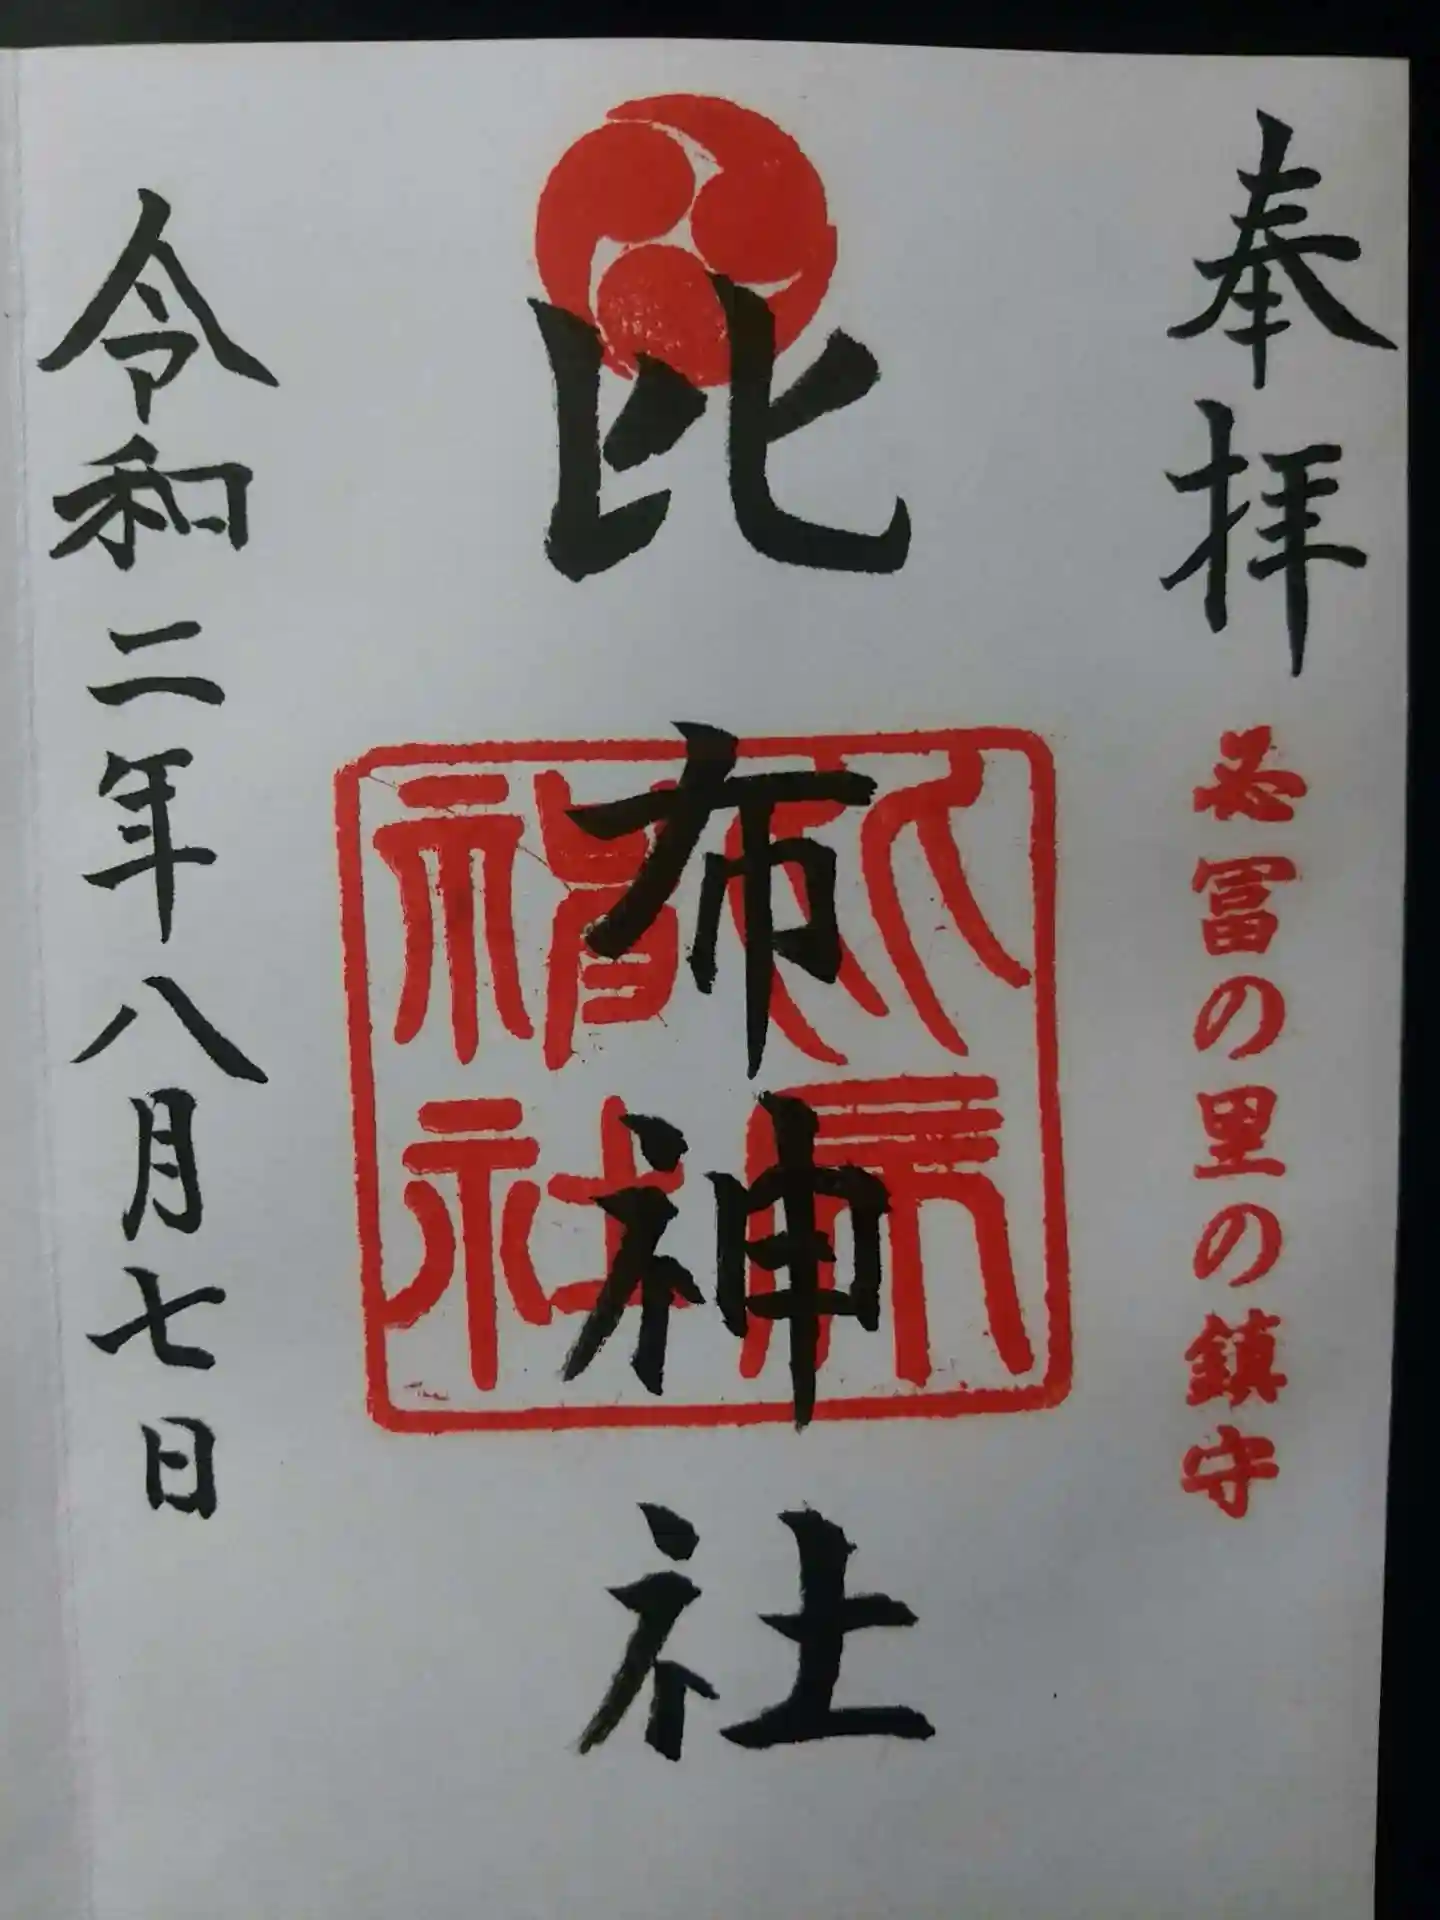 奉拝
必冨の里の鎮守
比布神社
比布
神社
令和二年八月七日